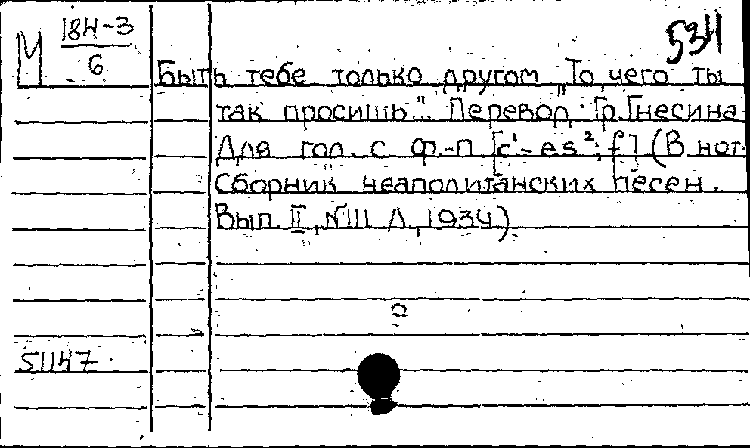 534
М 184-3
6
Быть тебе только другом „То, чего ты
так просишь". Перевод Гр. Гнесина
Для гол. с ф.-п [c¹-es²; f] (В нот.
Сборник неаполитанских песен.
Вып. II, № III Л, 1934)
51147